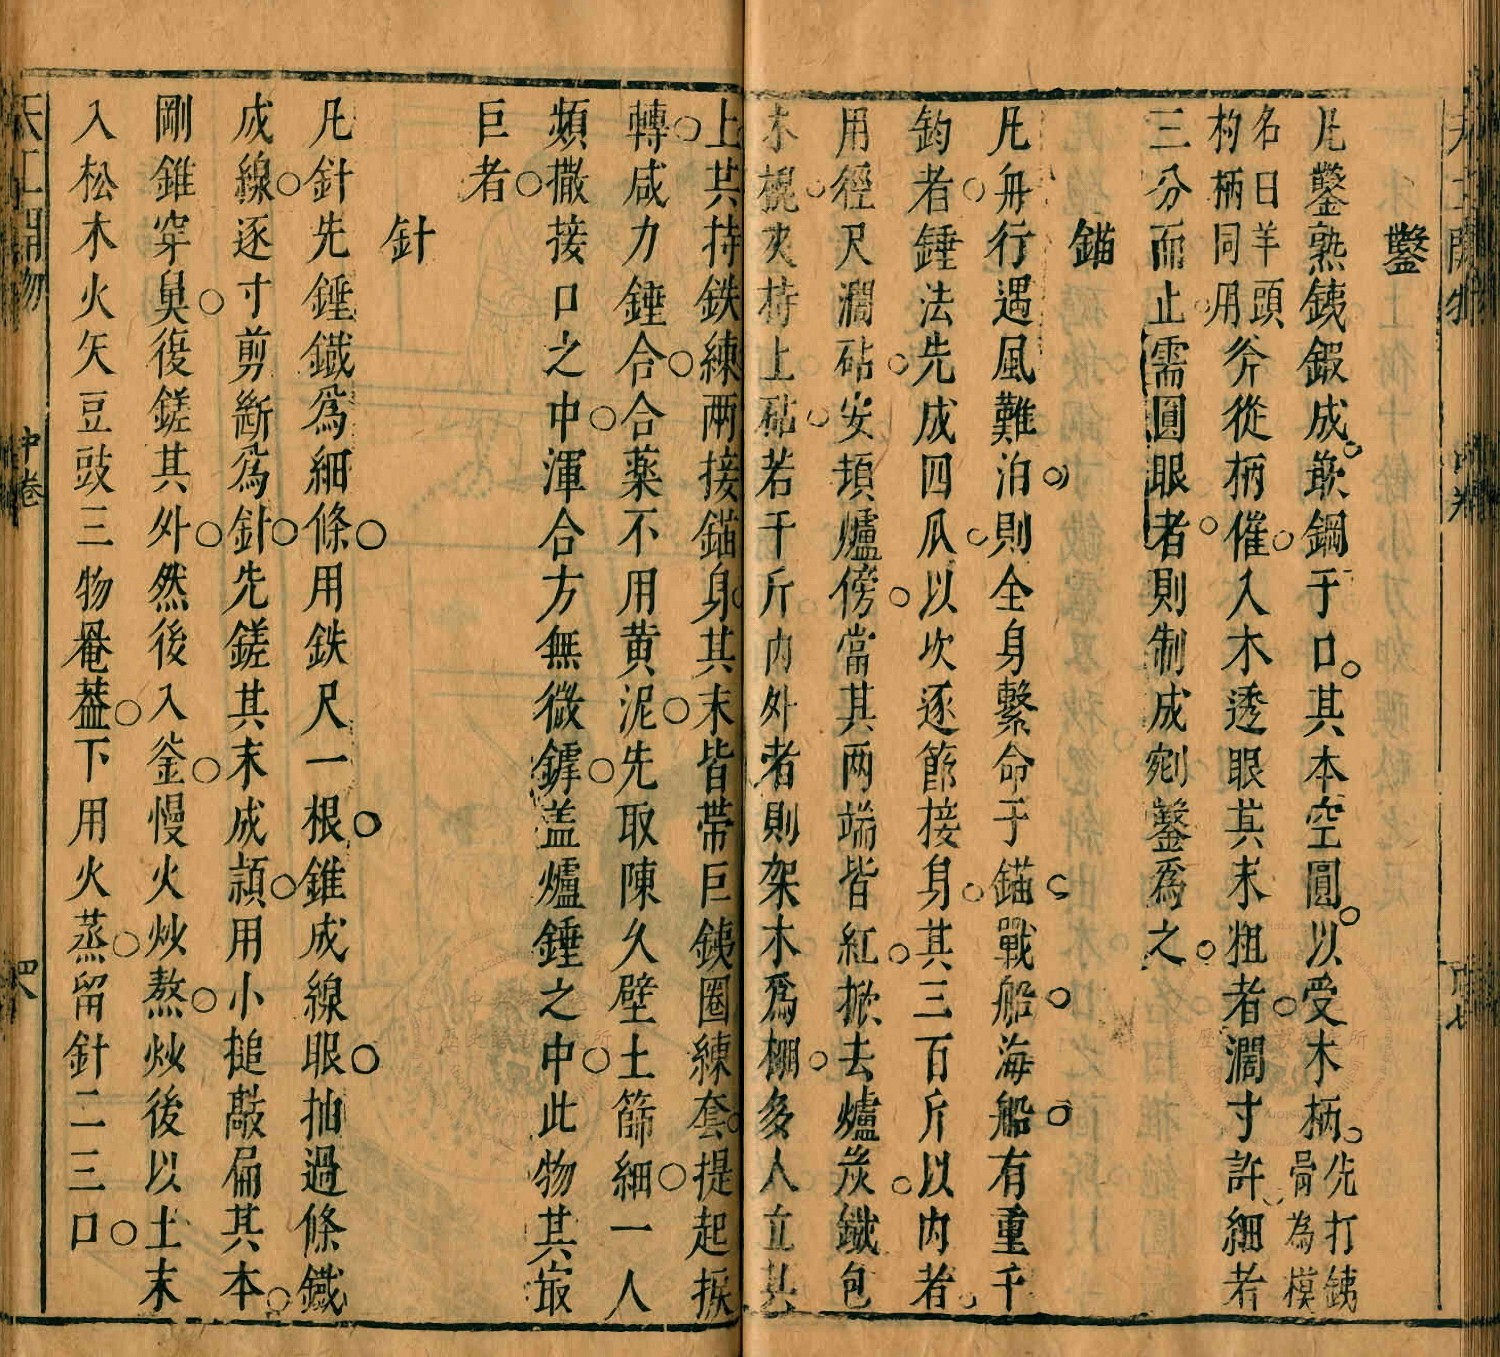 鑿
凡鑿熟鉄鍛成嵌鋼于口其本空圓以受木柄先打鉄骨為模
名曰羊頭杓柄同用斧從柄催入木透眼其末粗者濶寸許細者
三分而止需圓眼者則制成剜鑿爲之
錨
凡舟行遇風難泊則全身繫命于錨戰船海船有重千
鈞者錘法先成四爪以次逐節接身其三百斤以內者
用徑尺濶砧安頓爐傍當其兩端皆紅掀去爐炭鐵包
木棍夾持上砧若千斤內外者則架木爲棚多人立其
上共持鉄練兩接錨身其末皆帶巨鉄圈練套提起捩
轉咸力錘合合薬不用黄泥先取陳久壁土篩細一人
頻撒接口之中渾合方無微罅盖爐錘之中此物其㝡
巨者
針
凡針先錘鐵爲細條用鉄尺一根錐成線眼抽過條鐵
成線逐寸剪斷爲針先鎈其末成頴用小搥敲扁其本
剛錐穿鼻復鎈其外然後入釜慢火炒熬炒後以土末
入松木火矢豆豉三物罨葢下用火蒸留針二三口
天工開物
中卷